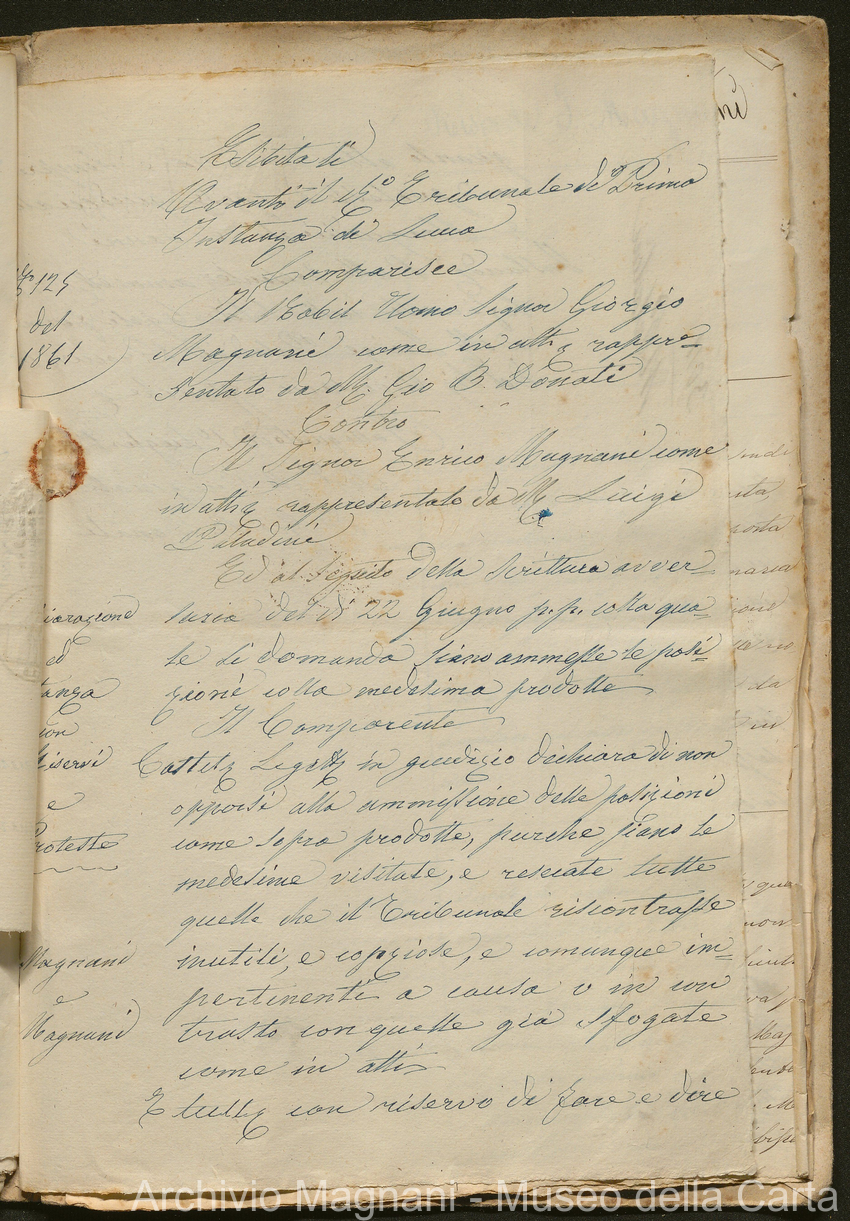 Esibita li
Avanti il R.º Tribunale di Prima
Instanza di Lucca
Comparisce
Il Nobil Uomo Signor Giorgio
Magnani come in atti rappre=
sentato da M.r Gio B. Donati
Contro
Il Signor Enrico Magnani come
in atti rappresentato da M.r Luigi
Paladini
Ed al seguito della Scrittura avver=
saria del dì 22 Giugno p.p. colla qua=
le si domanda siano ammesse le posi=
zioni colla medesima prodotte
Il Comparente
in giudizio dichiara di non
opporsi alla ammissione delle posizioni
come sopra prodotte, purche siano le
medesime visitate, e resecate tutte
quelle che il Tribunale riscontrasse
inutili, e coppiose, e comunque im=
pertinenti a causa o in con
trasto con quelle già sfogate
come in atti
E tutto con riservo di fare e dire
125
del
1861
iarazione
ed
tanza
con
Riservi
e
Proteste
Magnani
e
Magnani
Archivio Magnani - Museo della Carta